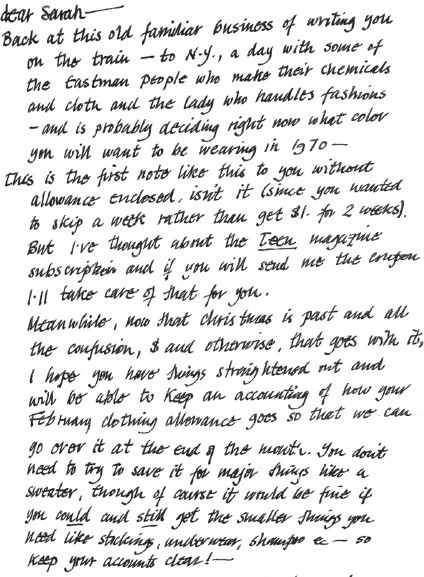 dear Sarah—
Back at this old familiar business of writing you
on the train — to N.Y., a day with some of
the Eastman people who make their chemicals
and cloth and the lady who handles fashions
– and is probably deciding right now what color
you will want to be wearing in 1970 —
This is the first note like this to you without
allowance enclosed, isn't it (since you wanted
to skip a week rather than get $1. for 2 weeks).
But I've thought about the Teen magazine
subscription and if you will send me the coupon
I'll take care of that for you.
Meanwhile, now that Christmas is past and all
the confusion, $ and otherwise, that goes with it,
I hope you have things straightened out and
will be able to keep an accounting of how your
February clothing allowance goes so that we can
go over it at the end of the month. You don't
need to try to save it for major things like a
sweater, though of course it would be fine if
you could and still get the smaller things you
need like stockings, underwear, shampoo ec — so
keep your accounts clear! —